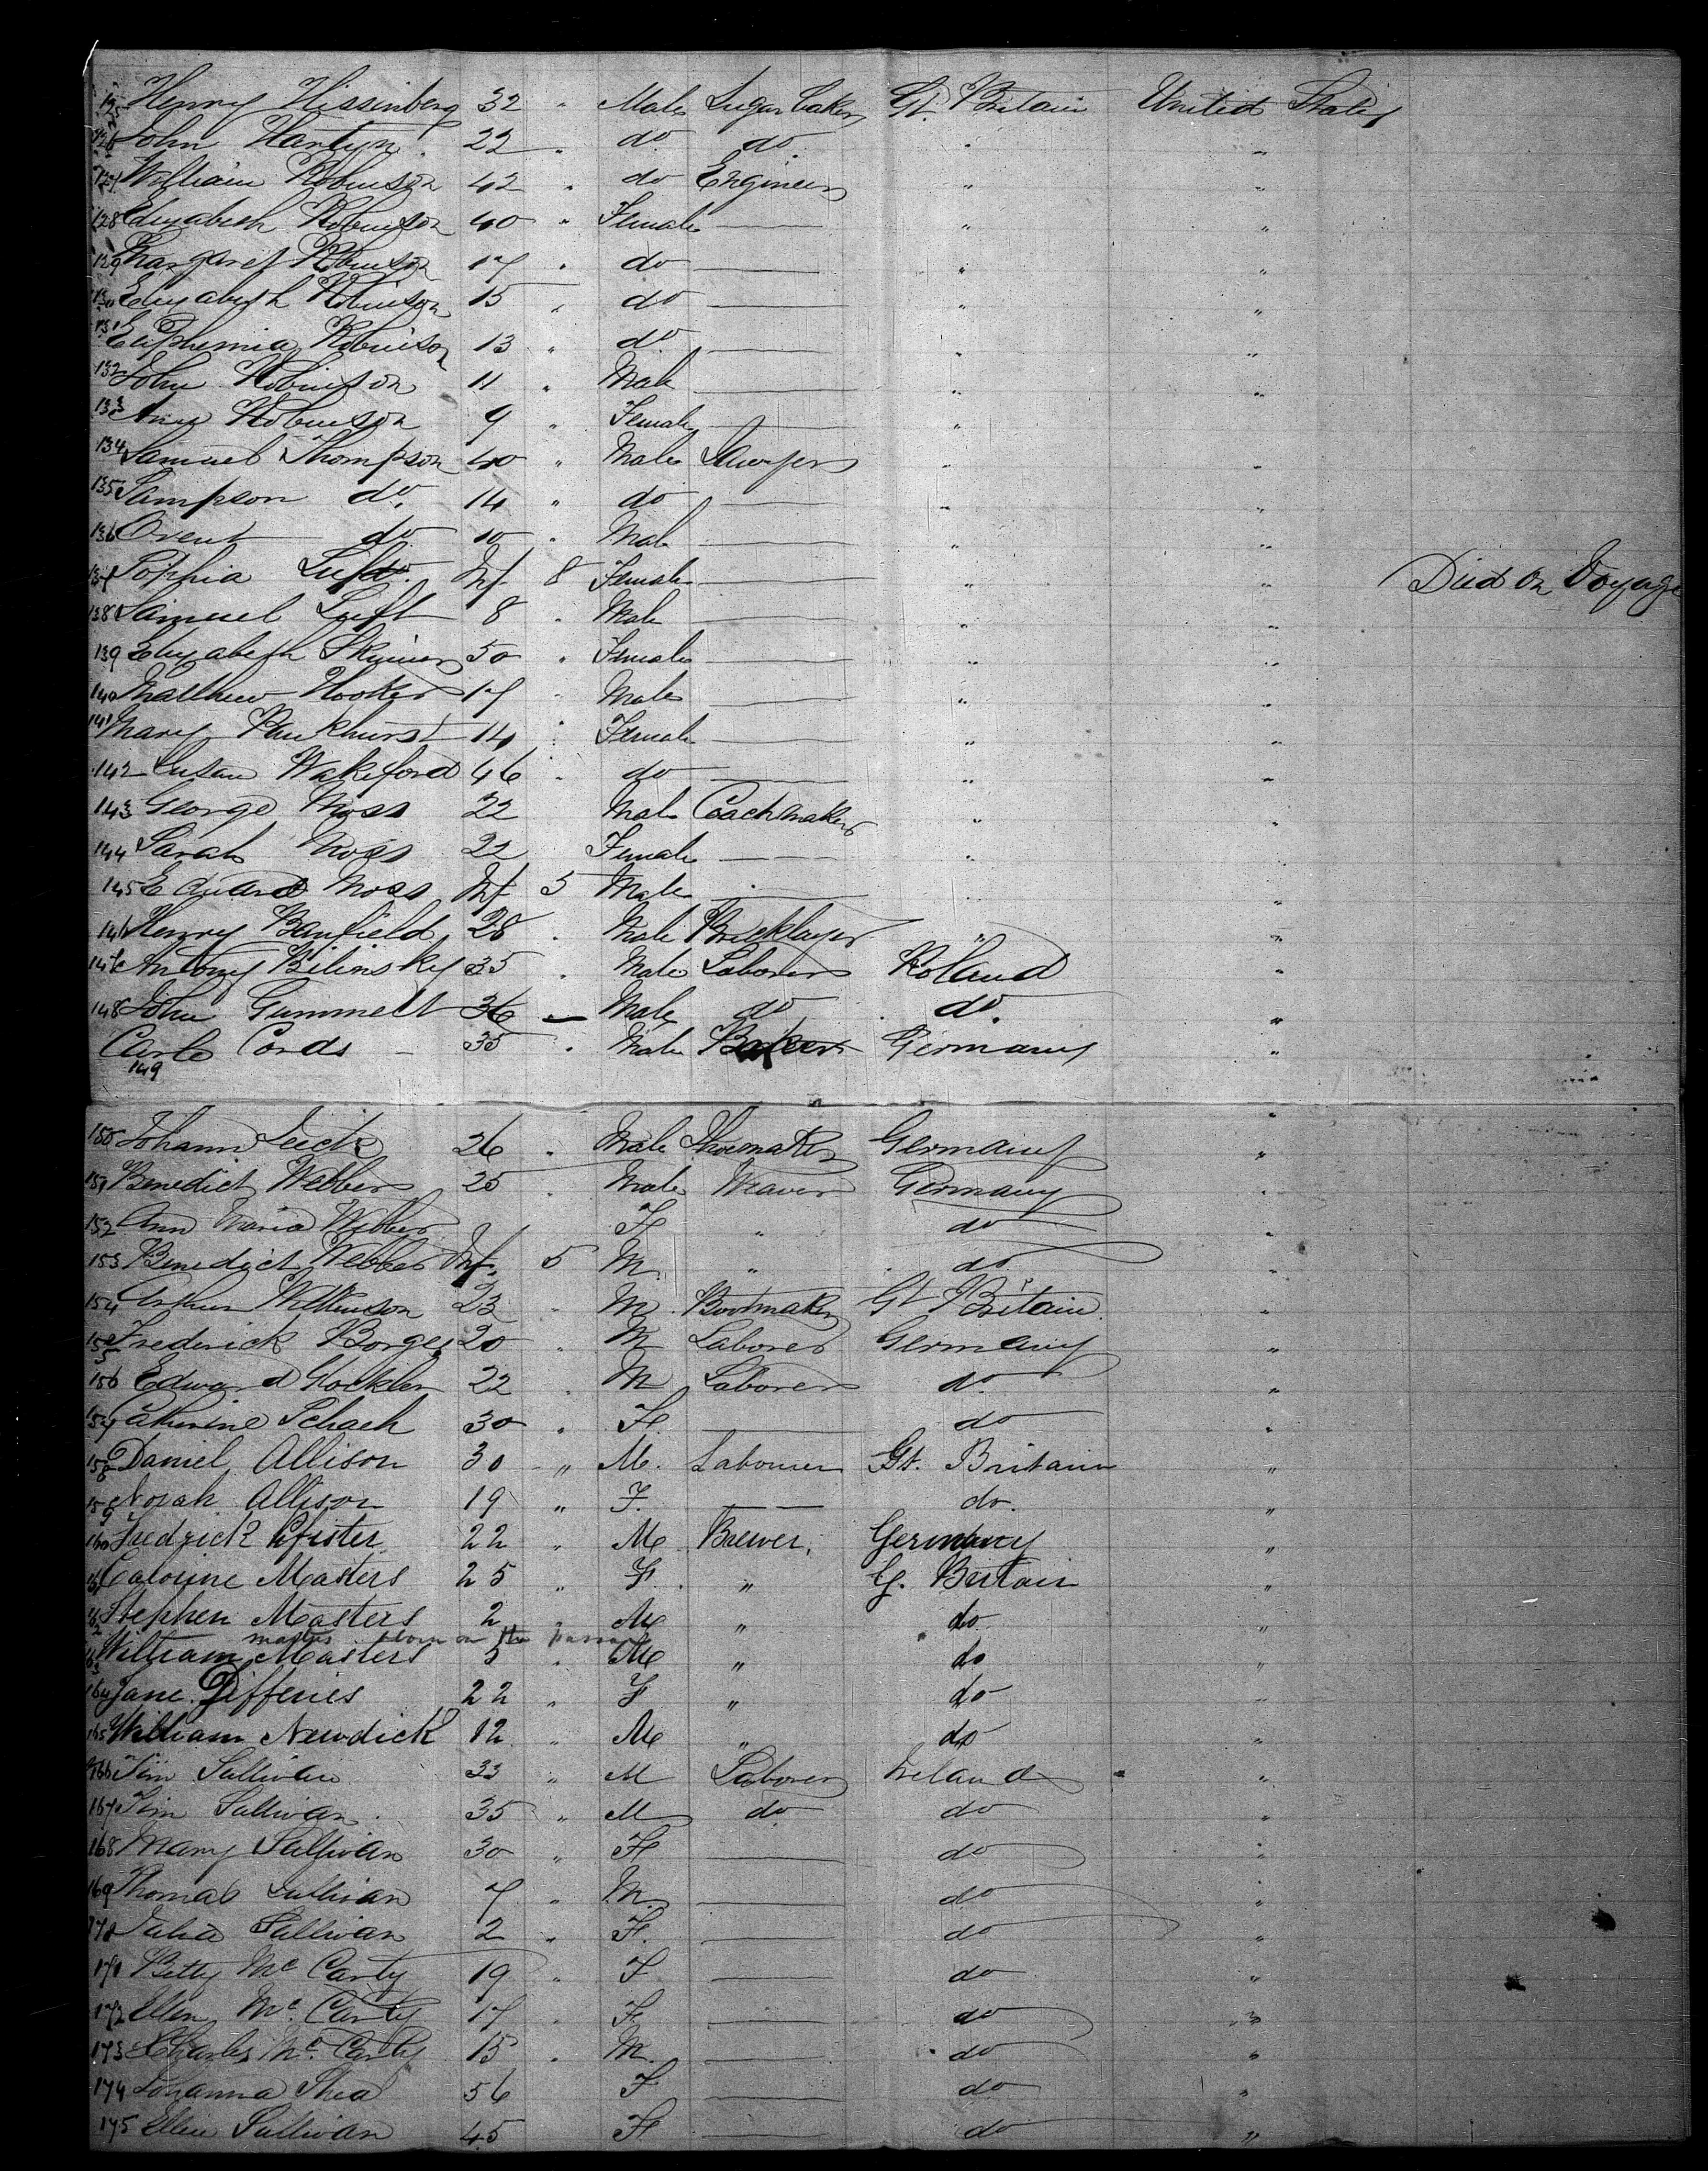 125 Henry Hissinberg 32 " Male Sugar baker Gt. Britain United States
126 John Hartyn 22 " do do. " "
127 William Robinson 42 " do Engineer " "
128 Elizabeth Robinson 40 " Female — " "
129 Margaret Robinson 17 " do — " "
130 Elizabeth Robinson 15 " do — " "
131 Euphemia Robinson 13 " do — " "
132 John Robinson 11 " Male — " "
133 Ann Robinson 9 " Female — " "
134 Samuel Thompson 40 " Male Sawyer " "
135 Sampson do. 14 " do — " "
136 do 10 " Male — " "
137 Sophia Luft Inf. 8 Female — " " Died on Voyage
138 Samuel Luft 8 " Male — " "
139 Elizabeth Skinner 50 " Female — " "
140 Matthew Hooker 17 " Male — " "
141 Mary Pankhurst 14 " Female — " "
142 Susan Wakeford 46 " do — " "
143 George Moss 22 Male Coachmaker " "
144 Sarah Moss 22 Female — " "
145 Edward Moss Inf 5 Male — " "
146 Henry Banfield 28 " Male Bricklayer " "
147 Antony Bilinsky 35 " Male Laborer Poland "
148 John Gummelt 36 " Male do do. "
Carlo Cords 35 " Male Baker Germany "
149
150 Johann Leick 26 " Male Shoemaker Germany "
151 Benedict Webber 25 " Male Weaver Germany "
152 Ann Maria Webber F " do "
153 Benedict Webber Inf. 5 M " do "
154 Arthur Wilkinson 23 " M. Bootmaker Gt Britain "
155 Frederick Borges 20 " M Laborer Germany "
156 Edward 22 " M Laborer do "
157 Catherine Schach 30 " F — do "
158 Daniel Allison 30 " M. Labourer Gt. Britain "
159 Norah Allison 19 " F. — do. "
160 Fredrick Pfister 22 " M Brewer, Germany "
161 Caroline Masters 25 " F. " G. Britain "
162 Stephen Masters 2 M " do "
masters born on the passage
163 William Masters 3 " M " do "
164 Jane Jifferies 22 " F " do "
165 William Newdick 12 " M " do "
166 Tim Sullivan 33 " M Laborer Ireland "
167 Tim Sullivan 35 " M do do "
168 Mary Sullivan 30 " F — do "
169 Thomas Sullivan 7 " M. — do "
170 Julia Sullivan 2 " F. — do "
171 Betty Mc Carty 19 " F — do "
172 Ellen Mc Carty 17 " F. — do "
173 Charles Mc Carty 15 " M. — do "
174 Johanna Shea 56 F — do "
175 Ellen Sullivan 45 F — do "